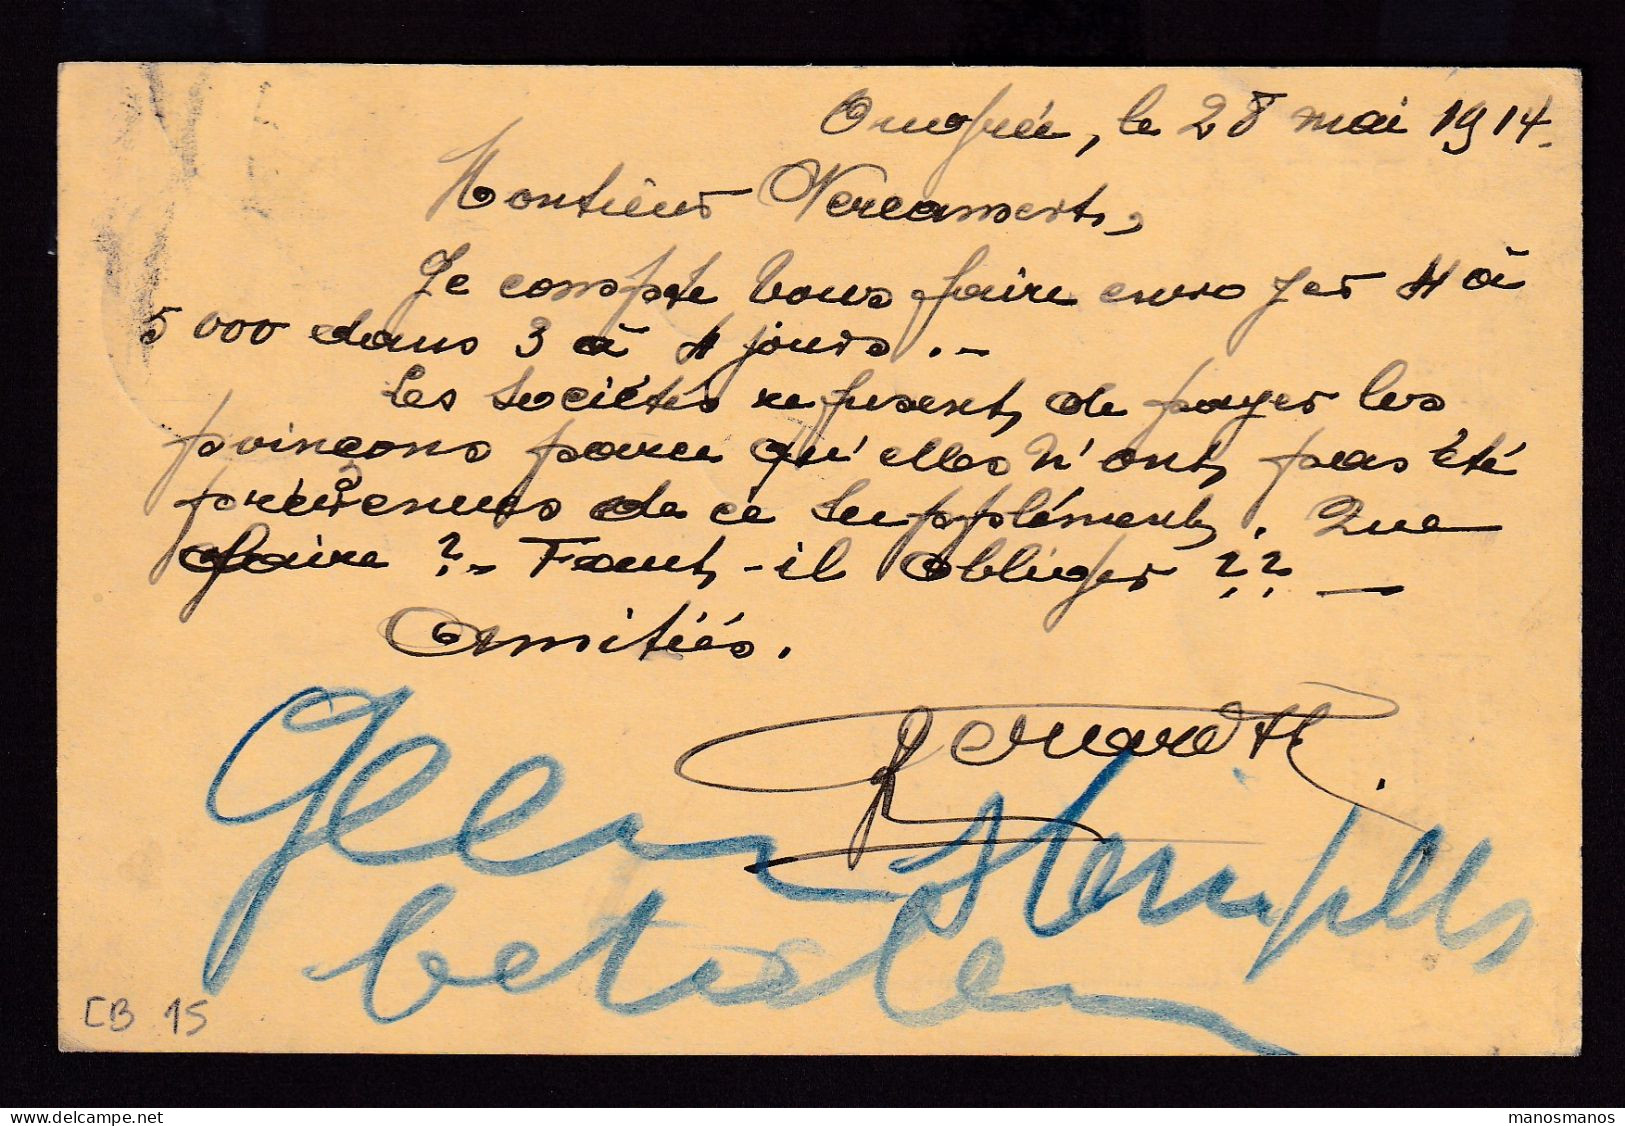 le 28 mai 1914.
Monsieur Vercammert,
Je compte vous faire envoyer 4 à
5 000 dans 3 à 4 jours. -
Les sociétés refusent de payer les
poinçons parce qu'elles n'ont pas été
prévenues de ce supplément. Que
faire ? - Faut-il obliger ?? -
Amitiés.
Geen stempels
betalen
CB 15
manosmanos